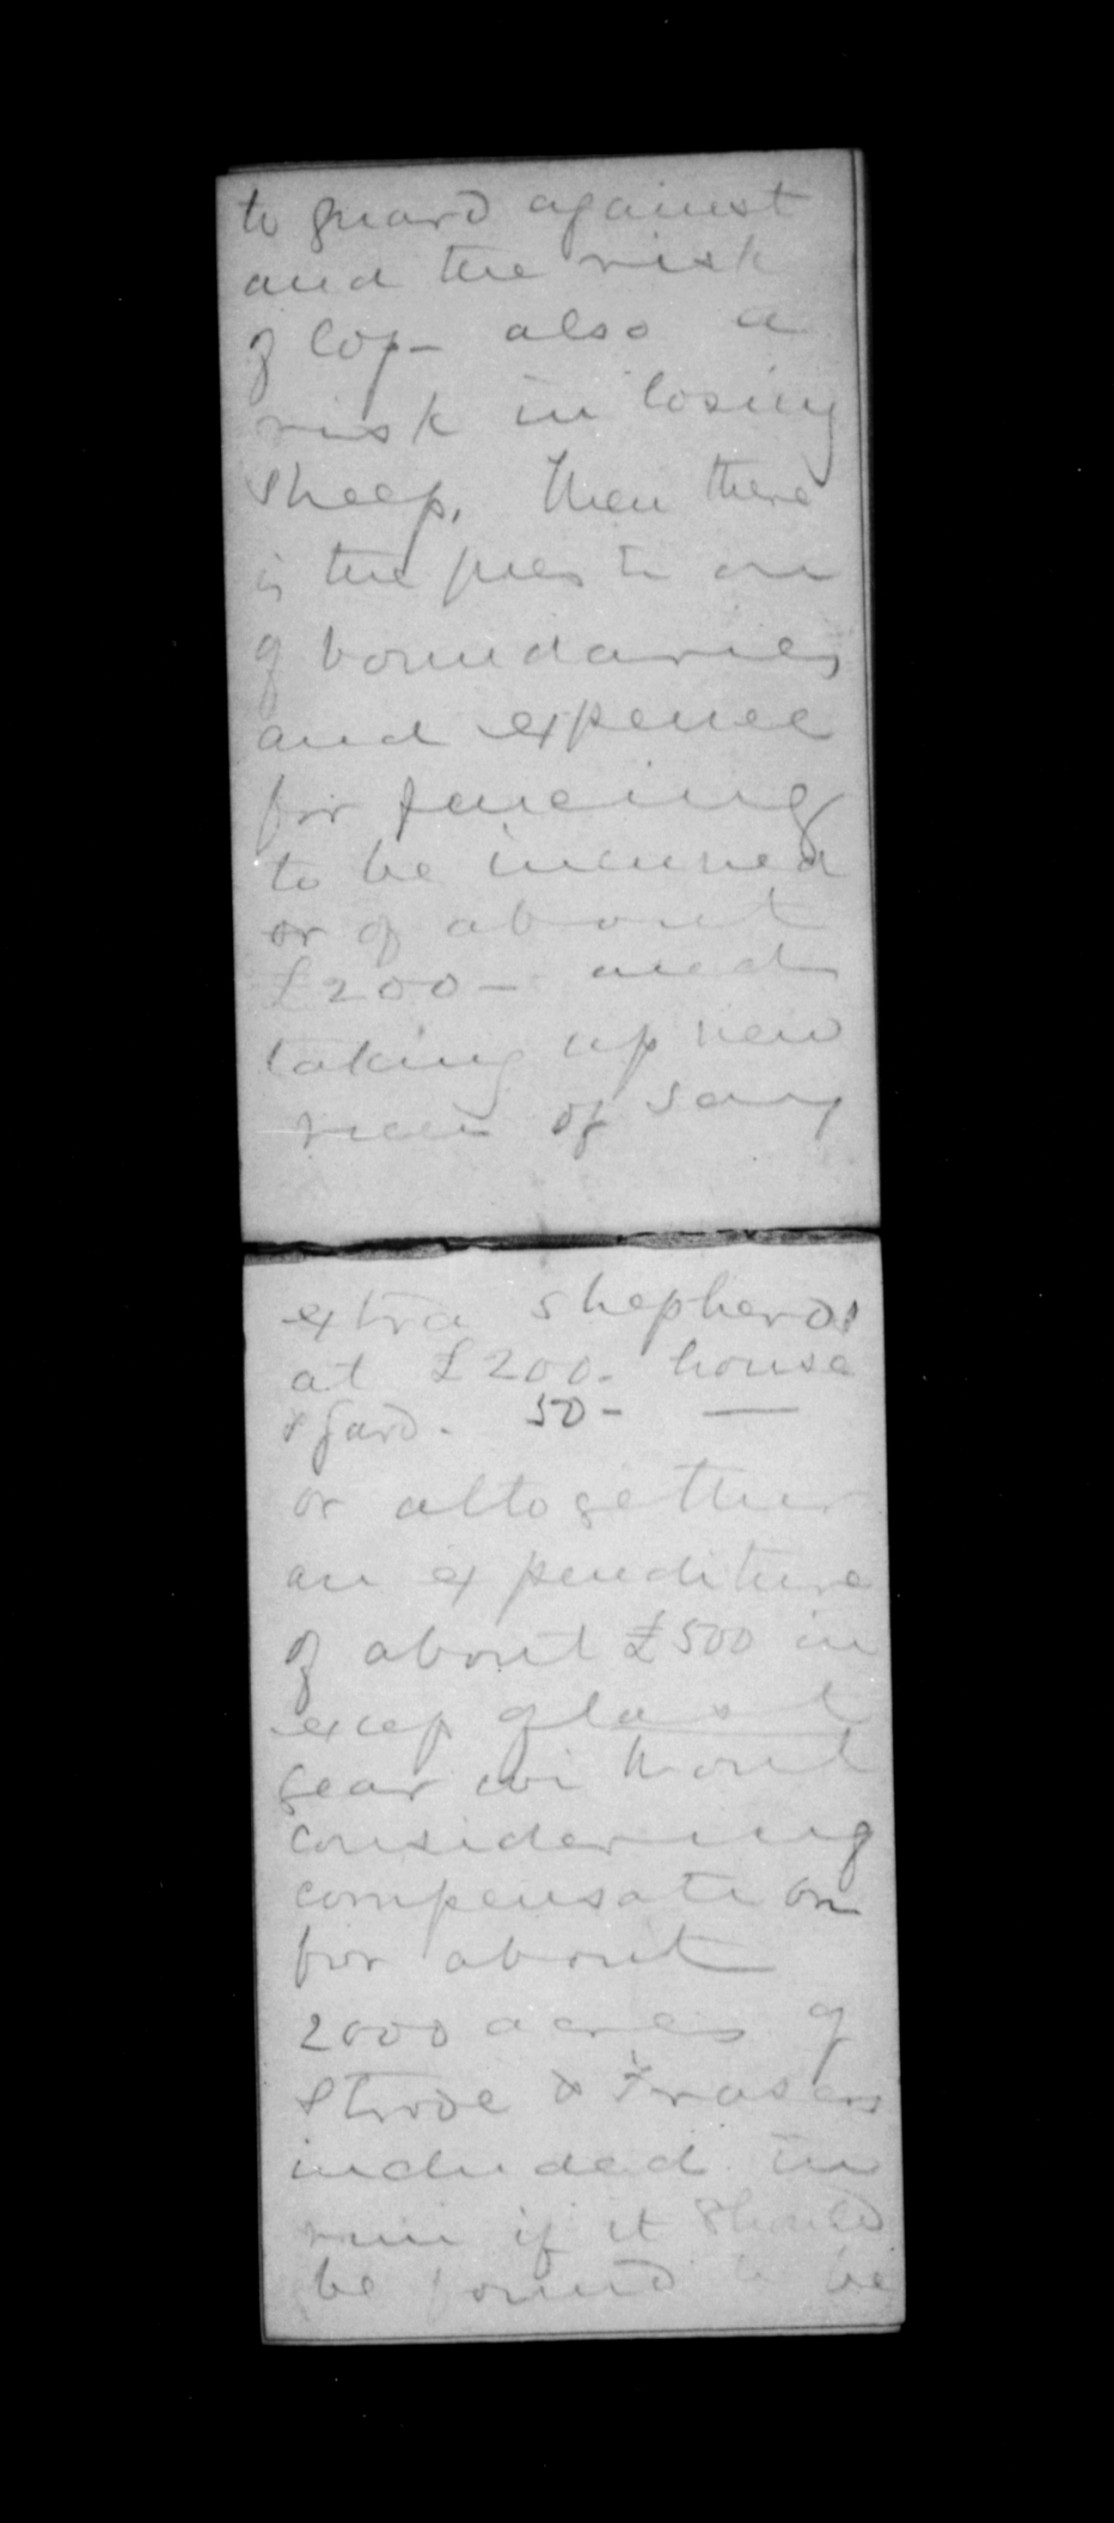 to guard against
and the risk
of loss - also a
risk in losing
sheep. Then there
is the question
of boundaries
and expence
for fencing
to be incurred
or of about
£200 - and
taking up new
of say
extra shepherds
at £200 - house
& gard. 50 - —
or altogether
an expenditure
of about £500 in
excess of last
year without
considering
compensation
for about
2000 acres of
Strode & Frasers
included in
run if it should
be found to be